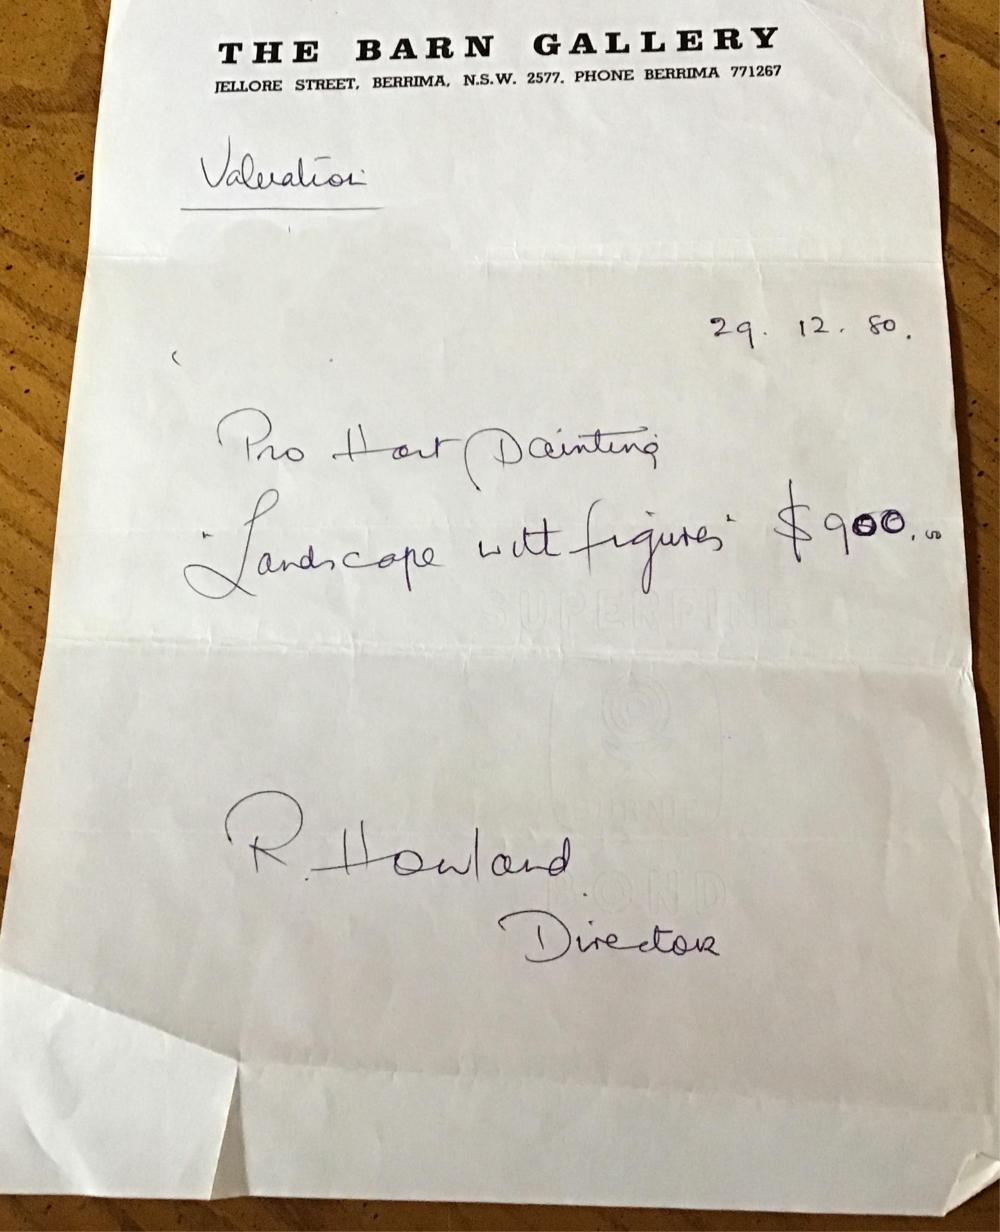 THE BARN GALLERY
JELLORE STREET, BERRIMA, N.S.W. 2577. PHONE BERRIMA 771267
Valuation
29. 12. 80.
Pro Hart Painting
"Landscape with figures" $900.00
SUPERFINE
BURNIE
BOND
R. Howland
Director